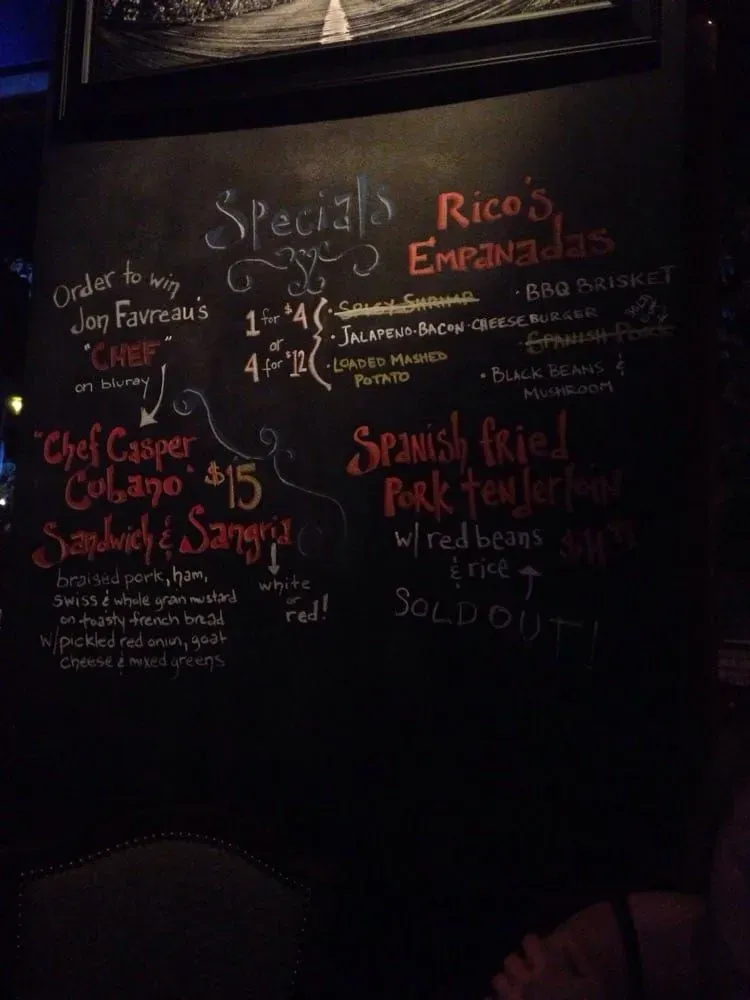 Specials
Rico's
Empanadas
Order to win
Jon Favreau's
"CHEF"
on bluray
1 for $4
or
4 for $12
· SPICY SHRIMP
· JALAPENO·BACON·CHEESEBURGER
· LOADED MASHED
POTATO
· BBQ BRISKET
SPANISH PORK
· BLACK BEANS &
MUSHROOM
"Chef Casper
Cubano" $15
Sandwich & Sangria
braised pork, ham,
swiss & whole grain mustard
on toasty french bread
w/pickled red onion, goat
cheese & mixed greens
white
or
red!
Spanish fried
Pork tenderloin
w/ red beans
& rice
SOLD OUT!